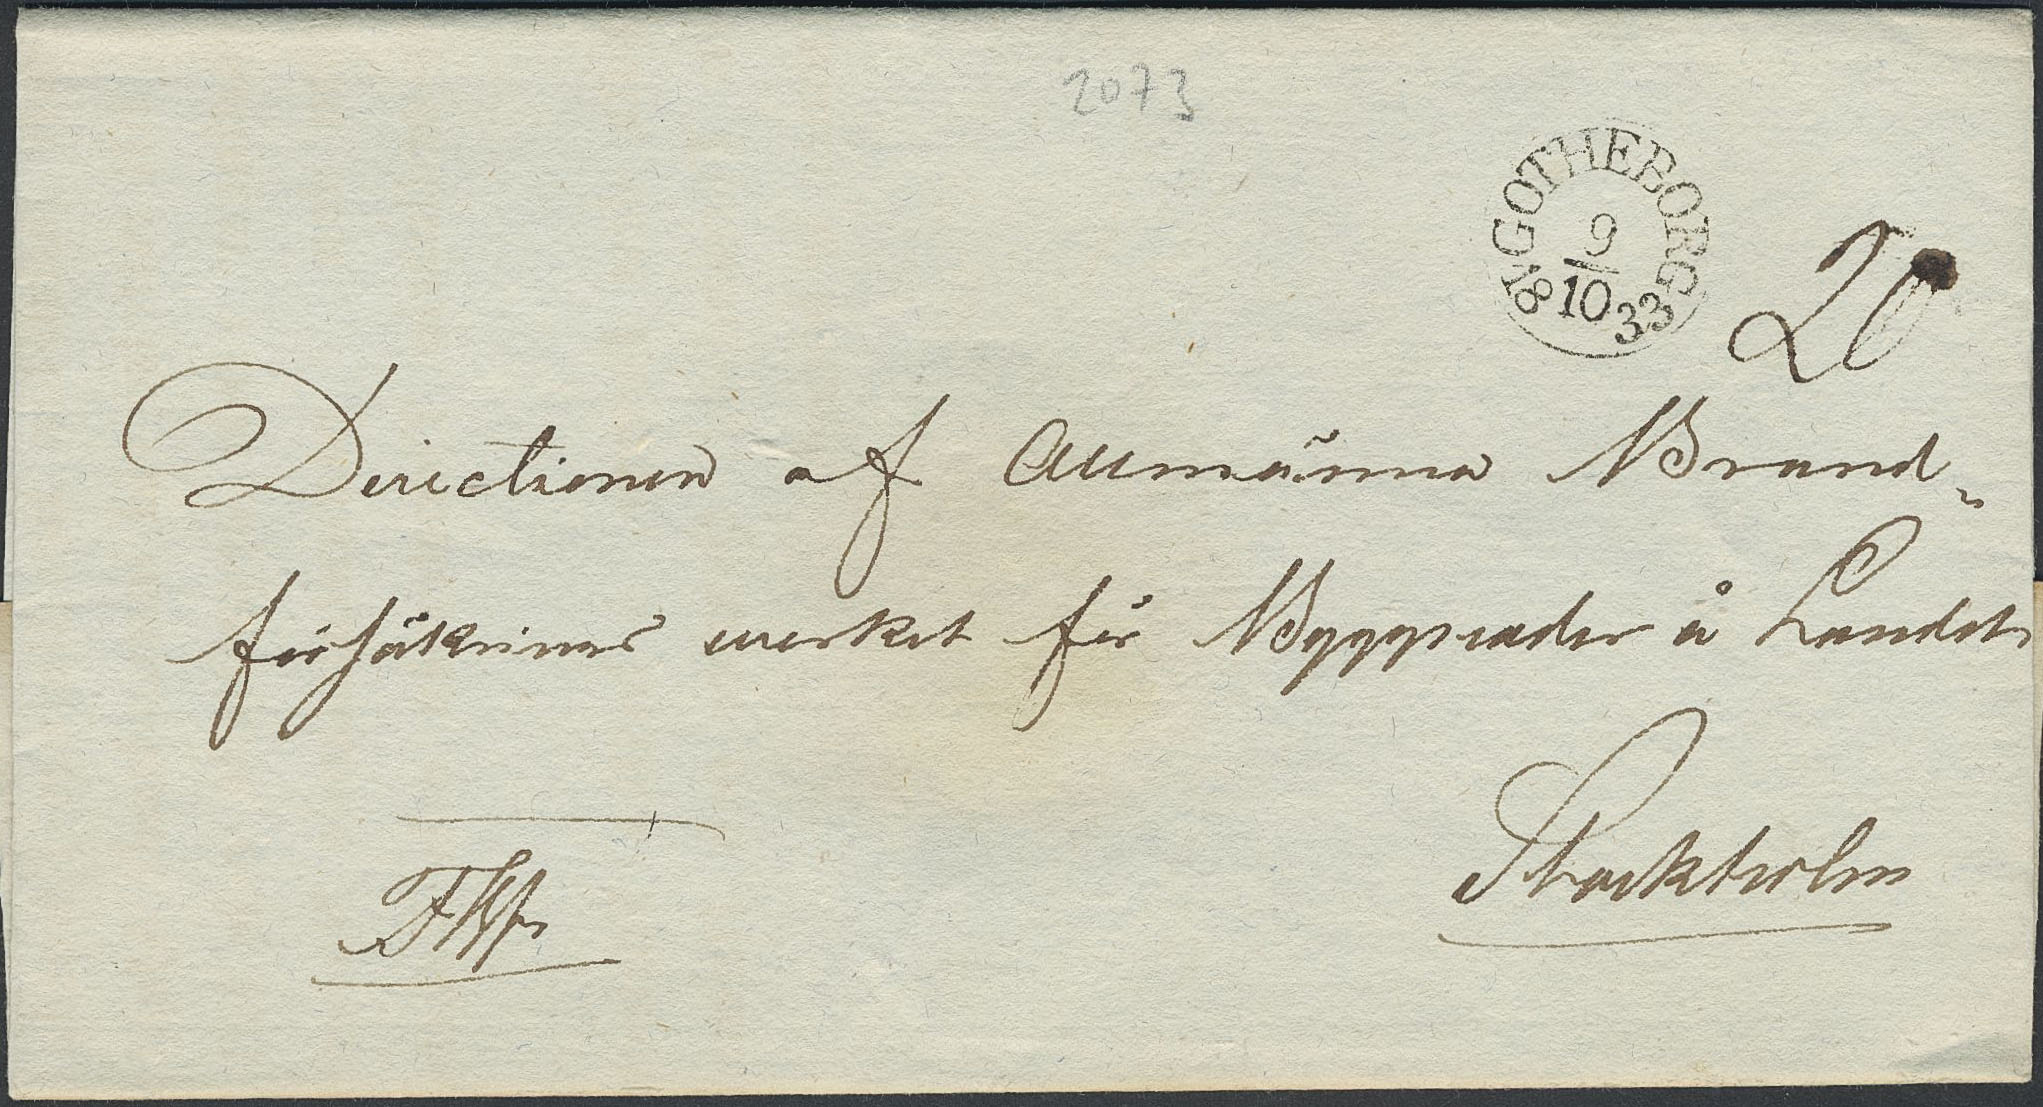 2073
GOTHEBORG
9
10
18 33
20
Directionen af Allmänna Brand-
försäkrings werket för Byggnader å Landet
Stockholm